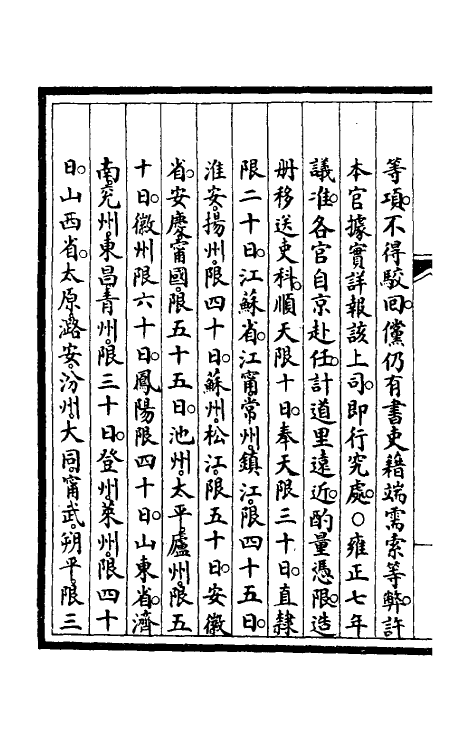 等項。不得駁回。儻仍有書吏藉端需索等弊。許
本官據實詳報該上司。即行究處。○雍正七年
議准。各官自京赴任。計道里遠近。酌量憑限。造
冊移送吏科。順天限十日。奉天限三十日。直隸
限二十日。江蘇省。江甯。常州。鎮江。限四十五日。
淮安。揚州。限四十日。蘇州。松江。限五十日。安徽
省。安慶。甯國。限五十五日。池州。太平。廬州。限五
十日。徽州限六十日。鳳陽限四十日。山東省。濟
南。兗州。東昌。青州。限三十日。登州。萊州。限四十
日。山西省。太原。潞安。汾州。大同。甯武。朔平。限三